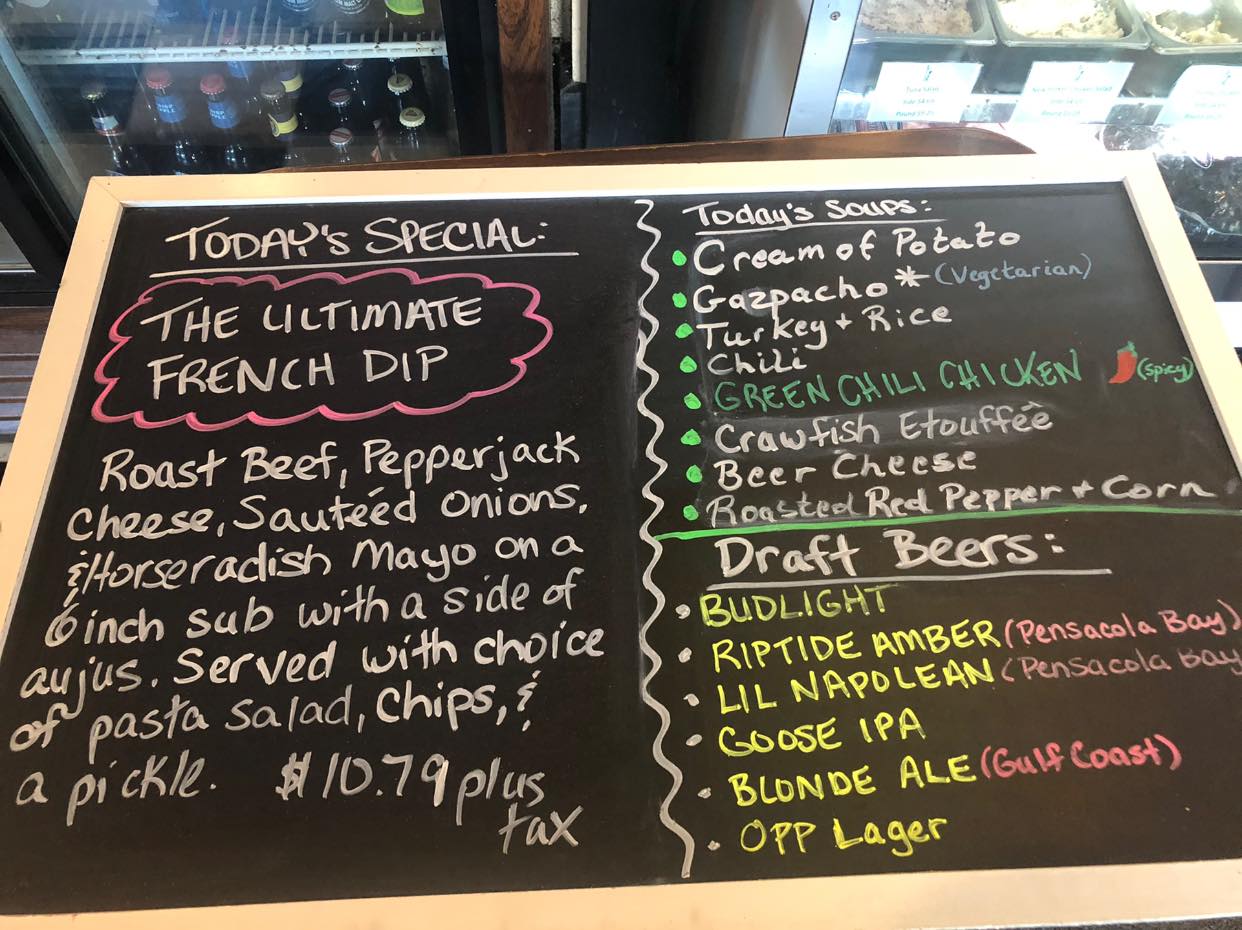 TODAY'S SPECIAL:
THE ULTIMATE
FRENCH DIP
Roast Beef, Pepperjack
Cheese, Sauteéd onions,
& Horseradish Mayo on a
6 inch sub with a side of
aujus. Served with choice
of pasta salad, chips, &
a pickle. $10.79 plus
tax
Today's Soups:
• Cream of Potato
• Gazpacho* (Vegetarian)
• Turkey + Rice
• Chili
• GREEN CHILI CHICKEN (spicy)
• Crawfish Etouffée
• Beer Cheese
• Roasted Red Pepper + Corn
Draft Beers:
• BUDLIGHT
• RIPTIDE AMBER (Pensacola Bay)
• LIL NAPOLEAN (Pensacola Bay
• GOOSE IPA
• BLONDE ALE (Gulf Coast)
• OPP Lager